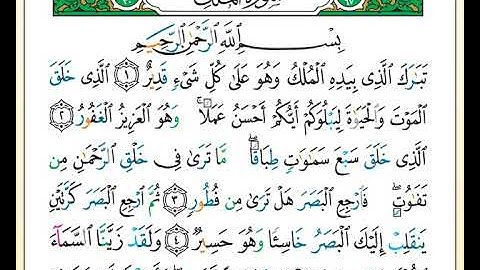 سُورَةُ المُلْكِ
بِسْمِ ٱللَّهِ ٱلرَّحْمَٰنِ ٱلرَّحِيمِ
تَبَٰرَكَ ٱلَّذِي بِيَدِهِ ٱلْمُلْكُ وَهُوَ عَلَىٰ كُلِّ شَيْءٍ قَدِيرٌ ١ ٱلَّذِي خَلَقَ
ٱلْمَوْتَ وَٱلْحَيَوٰةَ لِيَبْلُوَكُمْ أَيُّكُمْ أَحْسَنُ عَمَلًا ۚ وَهُوَ ٱلْعَزِيزُ ٱلْغَفُورُ ٢
ٱلَّذِي خَلَقَ سَبْعَ سَمَٰوَٰتٍ طِبَاقًا ۖ مَّا تَرَىٰ فِي خَلْقِ ٱلرَّحْمَٰنِ مِن
تَفَٰوُتٍ ۖ فَٱرْجِعِ ٱلْبَصَرَ هَلْ تَرَىٰ مِن فُطُورٍ ٣ ثُمَّ ٱرْجِعِ ٱلْبَصَرَ كَرَّتَيْنِ
يَنقَلِبْ إِلَيْكَ ٱلْبَصَرُ خَاسِئًا وَهُوَ حَسِيرٌ ٤ وَلَقَدْ زَيَّنَّا ٱلسَّمَآءَ